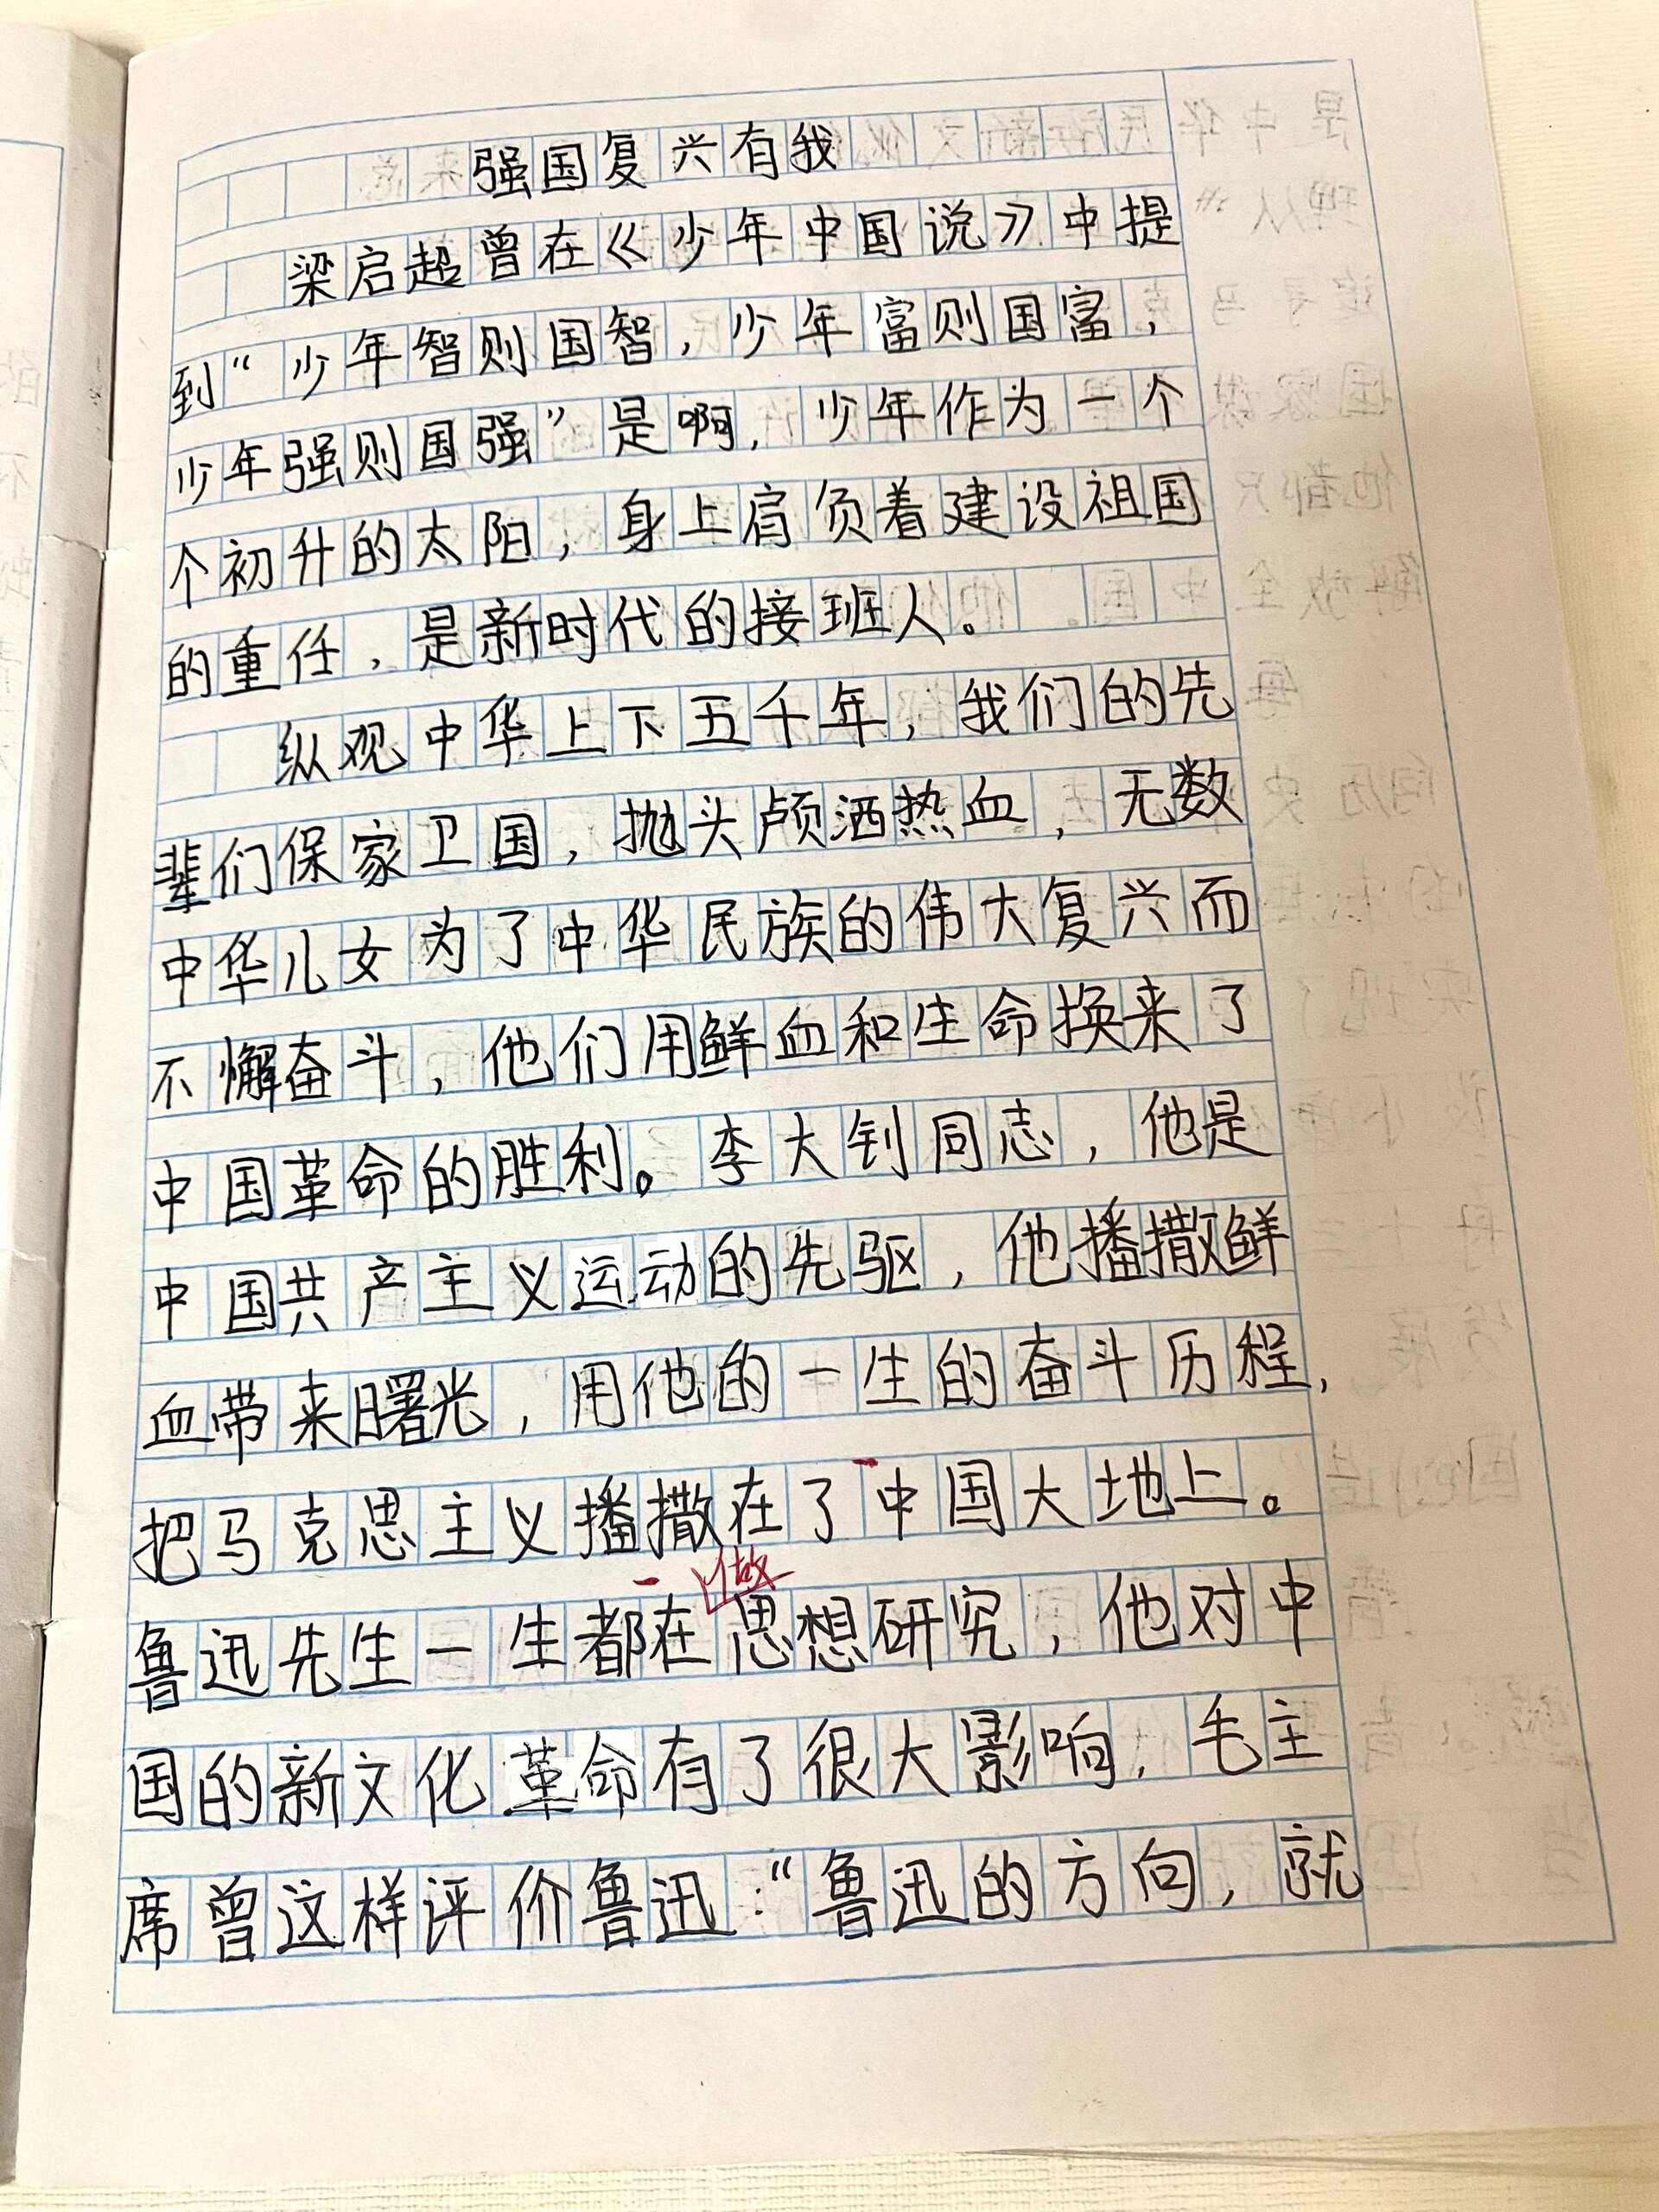 强国复兴有我
梁启超曾在《少年中国说》中提
到“少年智则国智，少年富则国富，
少年强则国强”是啊，少年作为一个
个初升的太阳，身上肩负着建设祖国
的重任，是新时代的接班人。
纵观中华上下五千年，我们的先
辈们保家卫国，抛头颅洒热血，无数
中华儿女为了中华民族的伟大复兴而
不懈奋斗，他们用鲜血和生命换来了
中国革命的胜利。李大钊同志，他是
中国共产主义运动的先驱，他播撒鲜
血带来曙光，用他的一生的奋斗历程，
把马克思主义播撒在了中国大地上。
做
鲁迅先生一生都在思想研究，他对中
国的新文化革命有了很大影响，毛主
席曾这样评价鲁迅：“鲁迅的方向，就